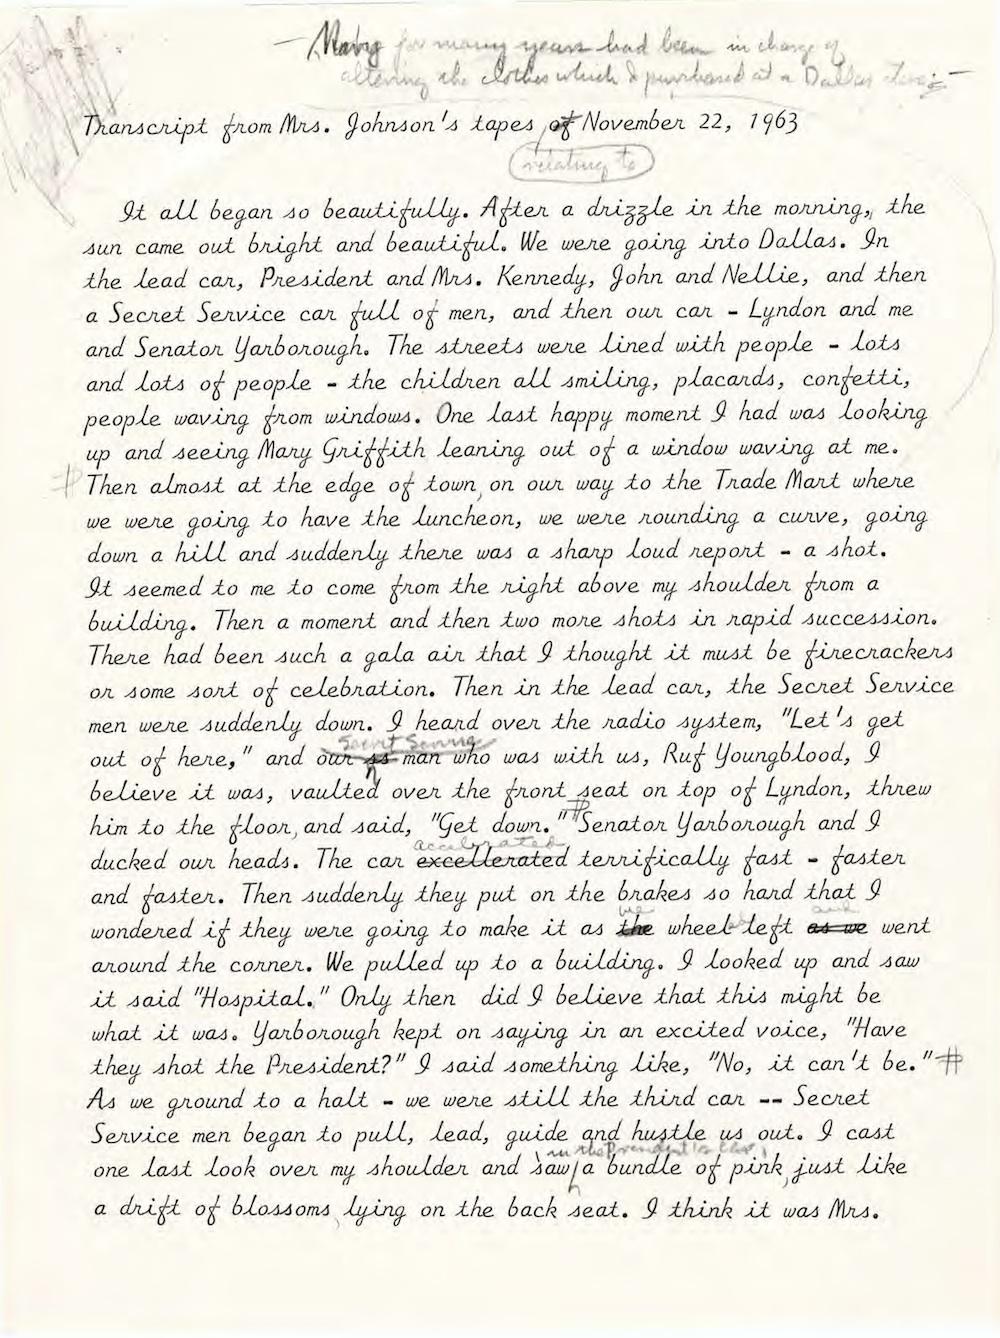 — Mary for many years had been in charge of
altering the clothes which I purchased at a Dallas —
Transcript from Mrs. Johnson's tapes of November 22, 1963
relating to
It all began so beautifully. After a drizzle in the morning, the
sun came out bright and beautiful. We were going into Dallas. In
the lead car, President and Mrs. Kennedy, John and Nellie, and then
a Secret Service car full of men, and then our car - Lyndon and me
and Senator Yarborough. The streets were lined with people - lots
and lots of people - the children all smiling, placards, confetti,
people waving from windows. One last happy moment I had was looking
up and seeing Mary Griffith leaning out of a window waving at me.
# Then almost at the edge of town, on our way to the Trade Mart where
we were going to have the luncheon, we were rounding a curve, going
down a hill and suddenly there was a sharp loud report - a shot.
It seemed to me to come from the right above my shoulder from a
building. Then a moment and then two more shots in rapid succession.
There had been such a gala air that I thought it must be firecrackers
or some sort of celebration. Then in the lead car, the Secret Service
men were suddenly down. I heard over the radio system, "Let's get
Secret Service
out of here," and our ss man who was with us, Ruf Youngblood, I
believe it was, vaulted over the front seat on top of Lyndon, threw
him to the floor, and said, "Get down." # Senator Yarborough and I
accelerated
ducked our heads. The car excellerated terrifically fast - faster
and faster. Then suddenly they put on the brakes so hard that I
we and
wondered if they were going to make it as the wheel left as we went
around the corner. We pulled up to a building. I looked up and saw
it said "Hospital." Only then did I believe that this might be
what it was. Yarborough kept on saying in an excited voice, "Have
they shot the President?" I said something like, "No, it can't be." #
As we ground to a halt - we were still the third car -- Secret
Service men began to pull, lead, guide and hustle us out. I cast
in the President's car,
one last look over my shoulder and saw a bundle of pink, just like
a drift of blossoms, lying on the back seat. I think it was Mrs.